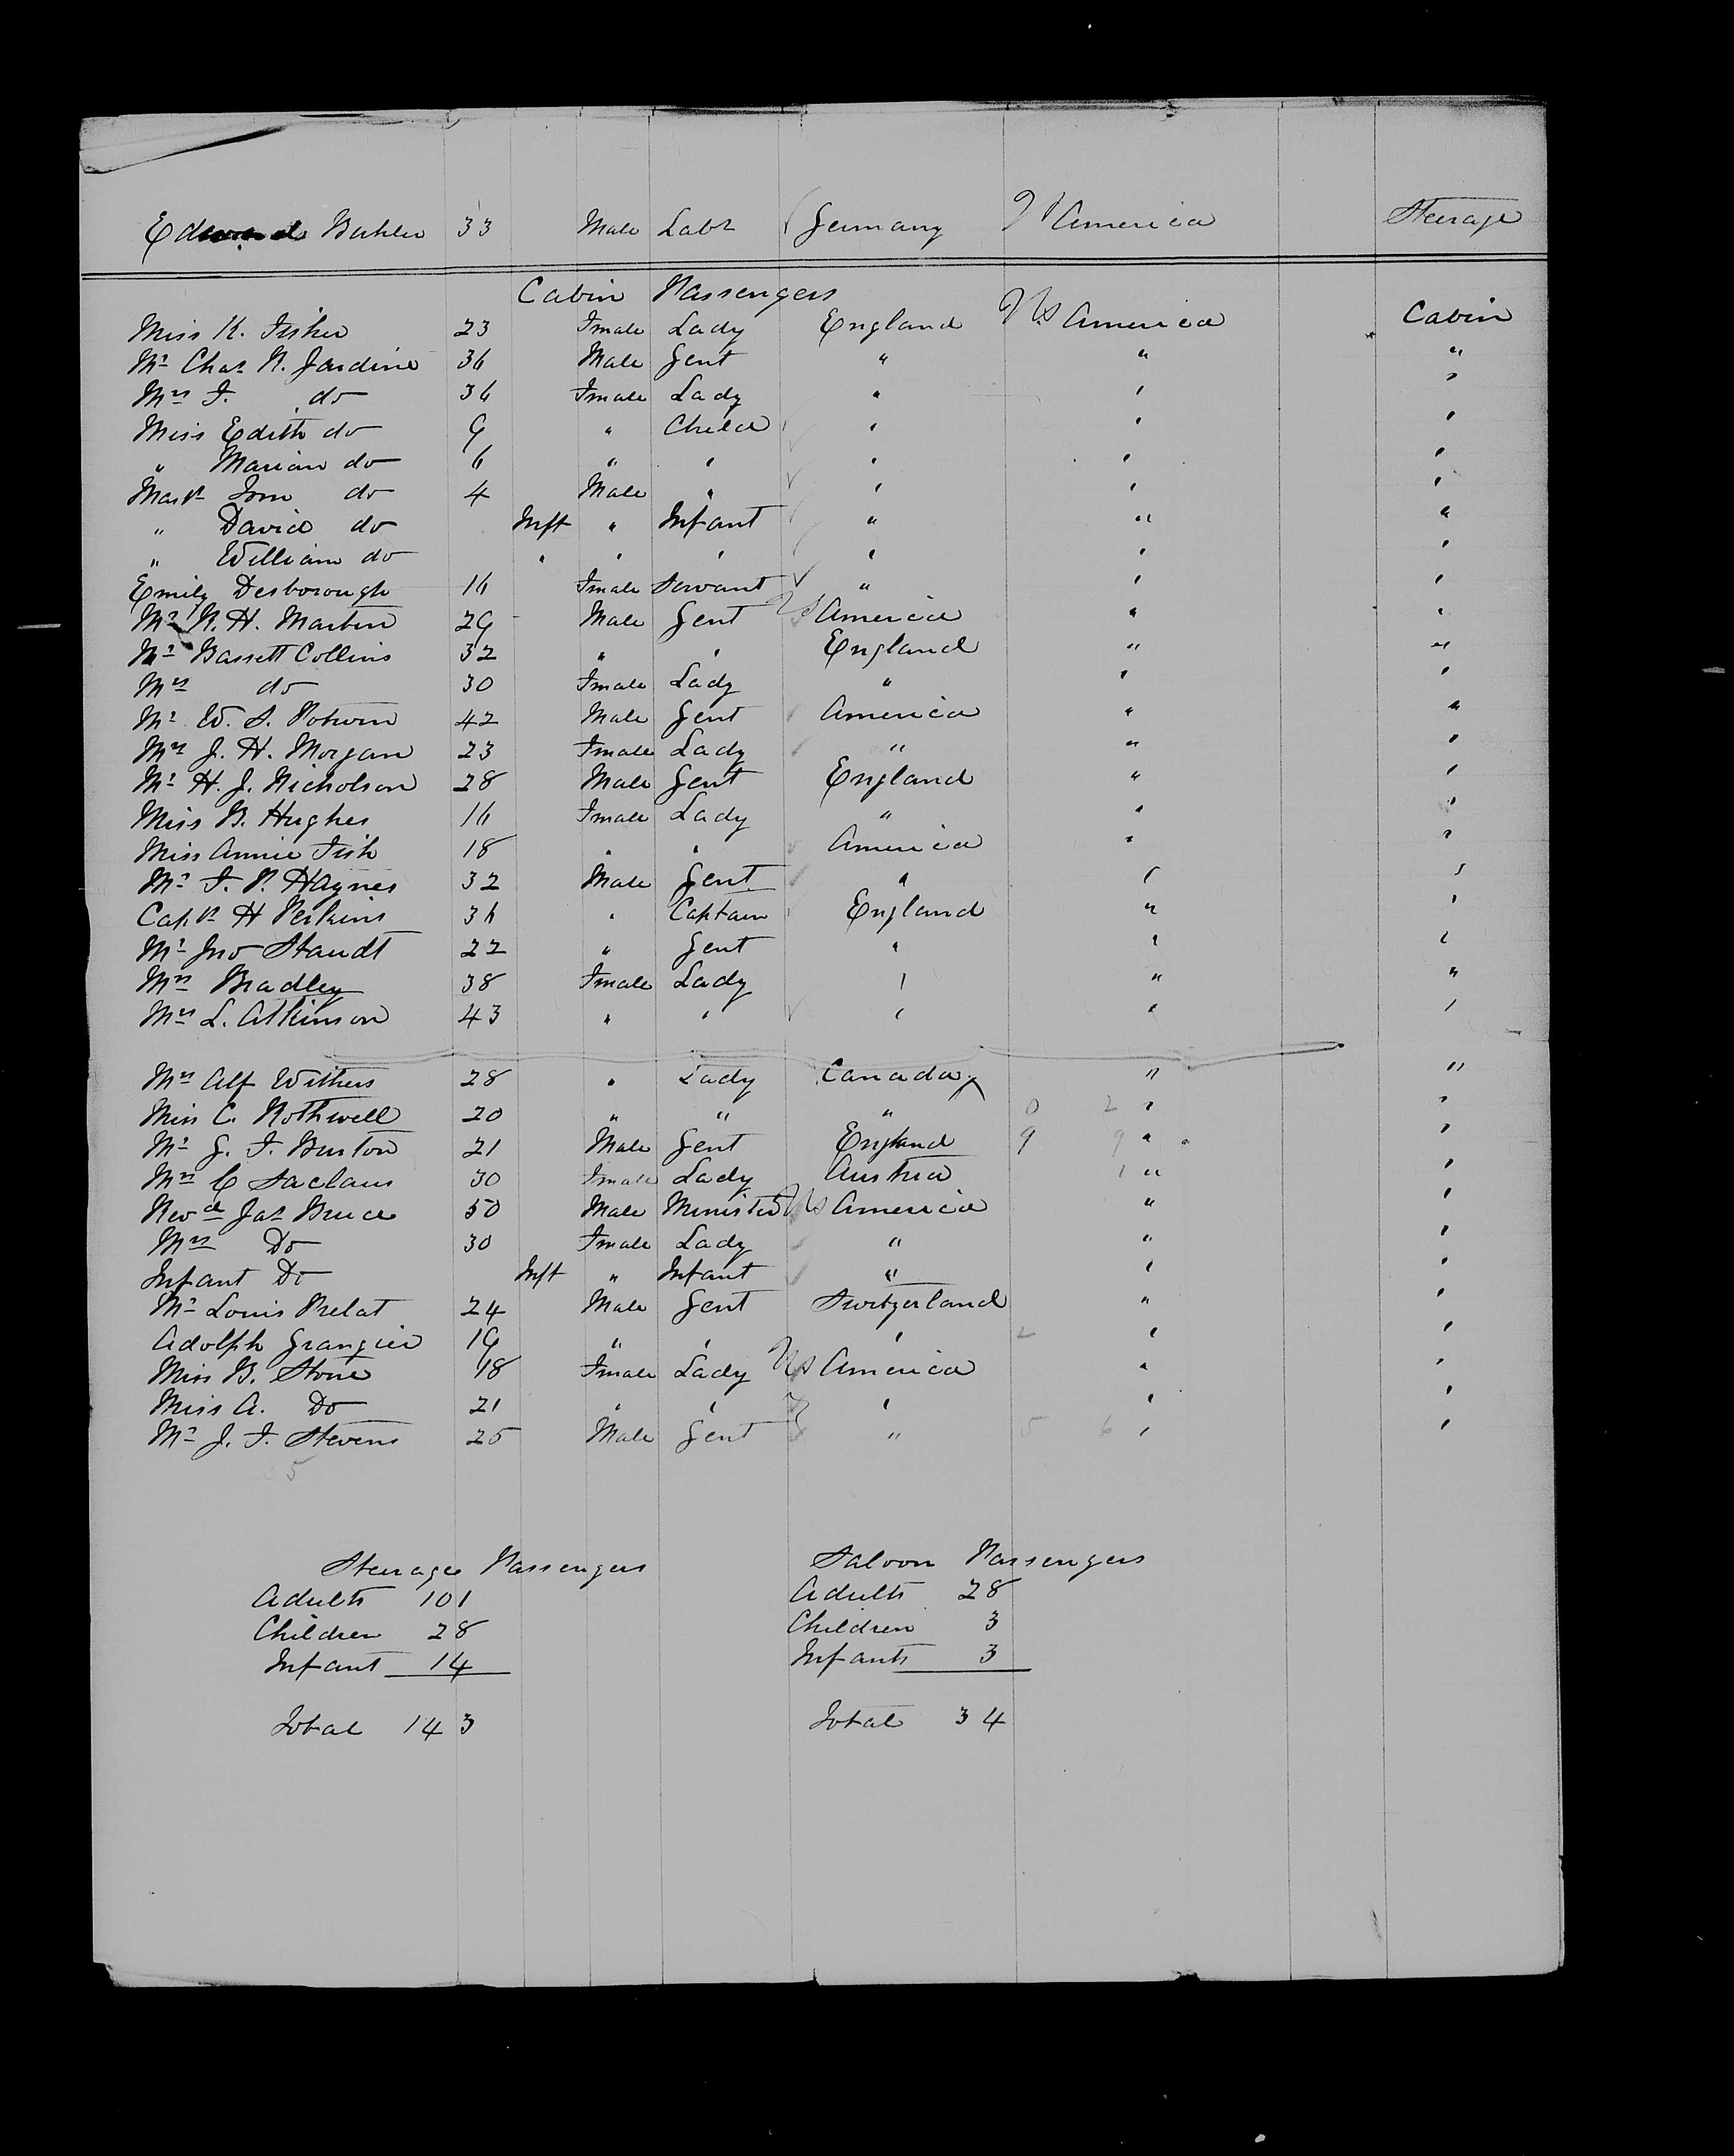 Edward Buhler 33 Male Labr Germany US America Steerage
Cabin Passengers
Miss K. Fisher 23 Fmale Lady England US America Cabin
Mr Chas R. Jardine 36 Male Gent " " "
Mrs F. do 36 Fmale Lady " " "
Miss Edith do 9 " Child " " "
" Marian do 6 " " " " "
Mastr Tom do 4 Male " " " "
" David do Inft " Infant " " "
" William do " " " " " "
Emily Desborough 16 Fmale Servant " " "
Mr R. H. Martin 29 Male Gent US America " "
Mr Bassett Collins 32 " " England " "
Mrs do 30 Fmale Lady " " "
Mr W. S. Potwin 42 Male Gent America " "
Mrs J. H. Morgan 23 Fmale Lady " " "
Mr H. J. Nicholson 28 Male Gent England " "
Miss B. Hughes 16 Fmale Lady " " "
Miss Annie Fish 18 " " America " "
Mr F. P. Haynes 32 Male Gent " " "
Captn H Perkins 36 " Captain England " "
Mr Jno Staudt 22 " Gent " " "
Mrs Bradley 38 Fmale Lady " " "
Mrs L. Atkinson 43 " " " " "
Mrs Alf Withers 28 " Lady Canada " "
Miss C. Rothwell 20 " " " 0 2 " "
Mr G. F. Burton 21 Male Gent England 9 9 " "
Mrs C 30 Fmale Lady Austria 1 " "
Revd Jas Bruce 50 Male Minister US America " "
Mrs Do 30 Fmale Lady " " "
Infant Do Inft " Infant " " "
Mr Louis Prelat 24 Male Gent Switzerland " "
Adolph Grangier 19 " " " 2 " "
Miss B. Stone 18 Fmale Lady US America " "
Miss A. Do 21 " " " " "
Mr J. F. Stevens 25 Male Gent " 5 6 " "
Steerage Passengers Saloon Passengers
Adults 101 Adults 28
Children 28 Children 3
Infant 14 Infants 3
Total 143 Total 34